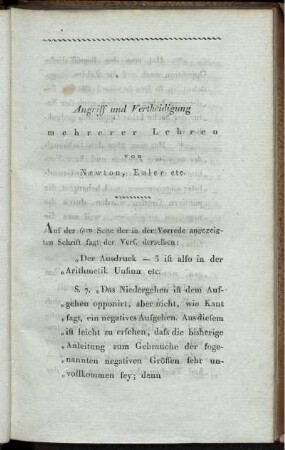 Angriff und Vertheidigung
mehrerer Lehren
von
Newton, Euler etc.
Auf der 6ten Seite der in der Vorrede angezeig-
ten Schrift sagt der Verf. derselben:
„Der Ausdruck — 3 ist alſo in der
„Arithmetik Unſinn etc.
S. 7. „Das Niedergehen iſt dem Auf-
„gehen opponirt, aber nicht, wie Kant
„ſagt, ein negatives Aufgehen. Aus dieſem
„iſt leicht zu erſehen, daſs die bisherige
„Anleitung zum Gebrauche der ſoge-
„nannten negativen Gröſsen ſehr un-
„vollkommen ſey; denn